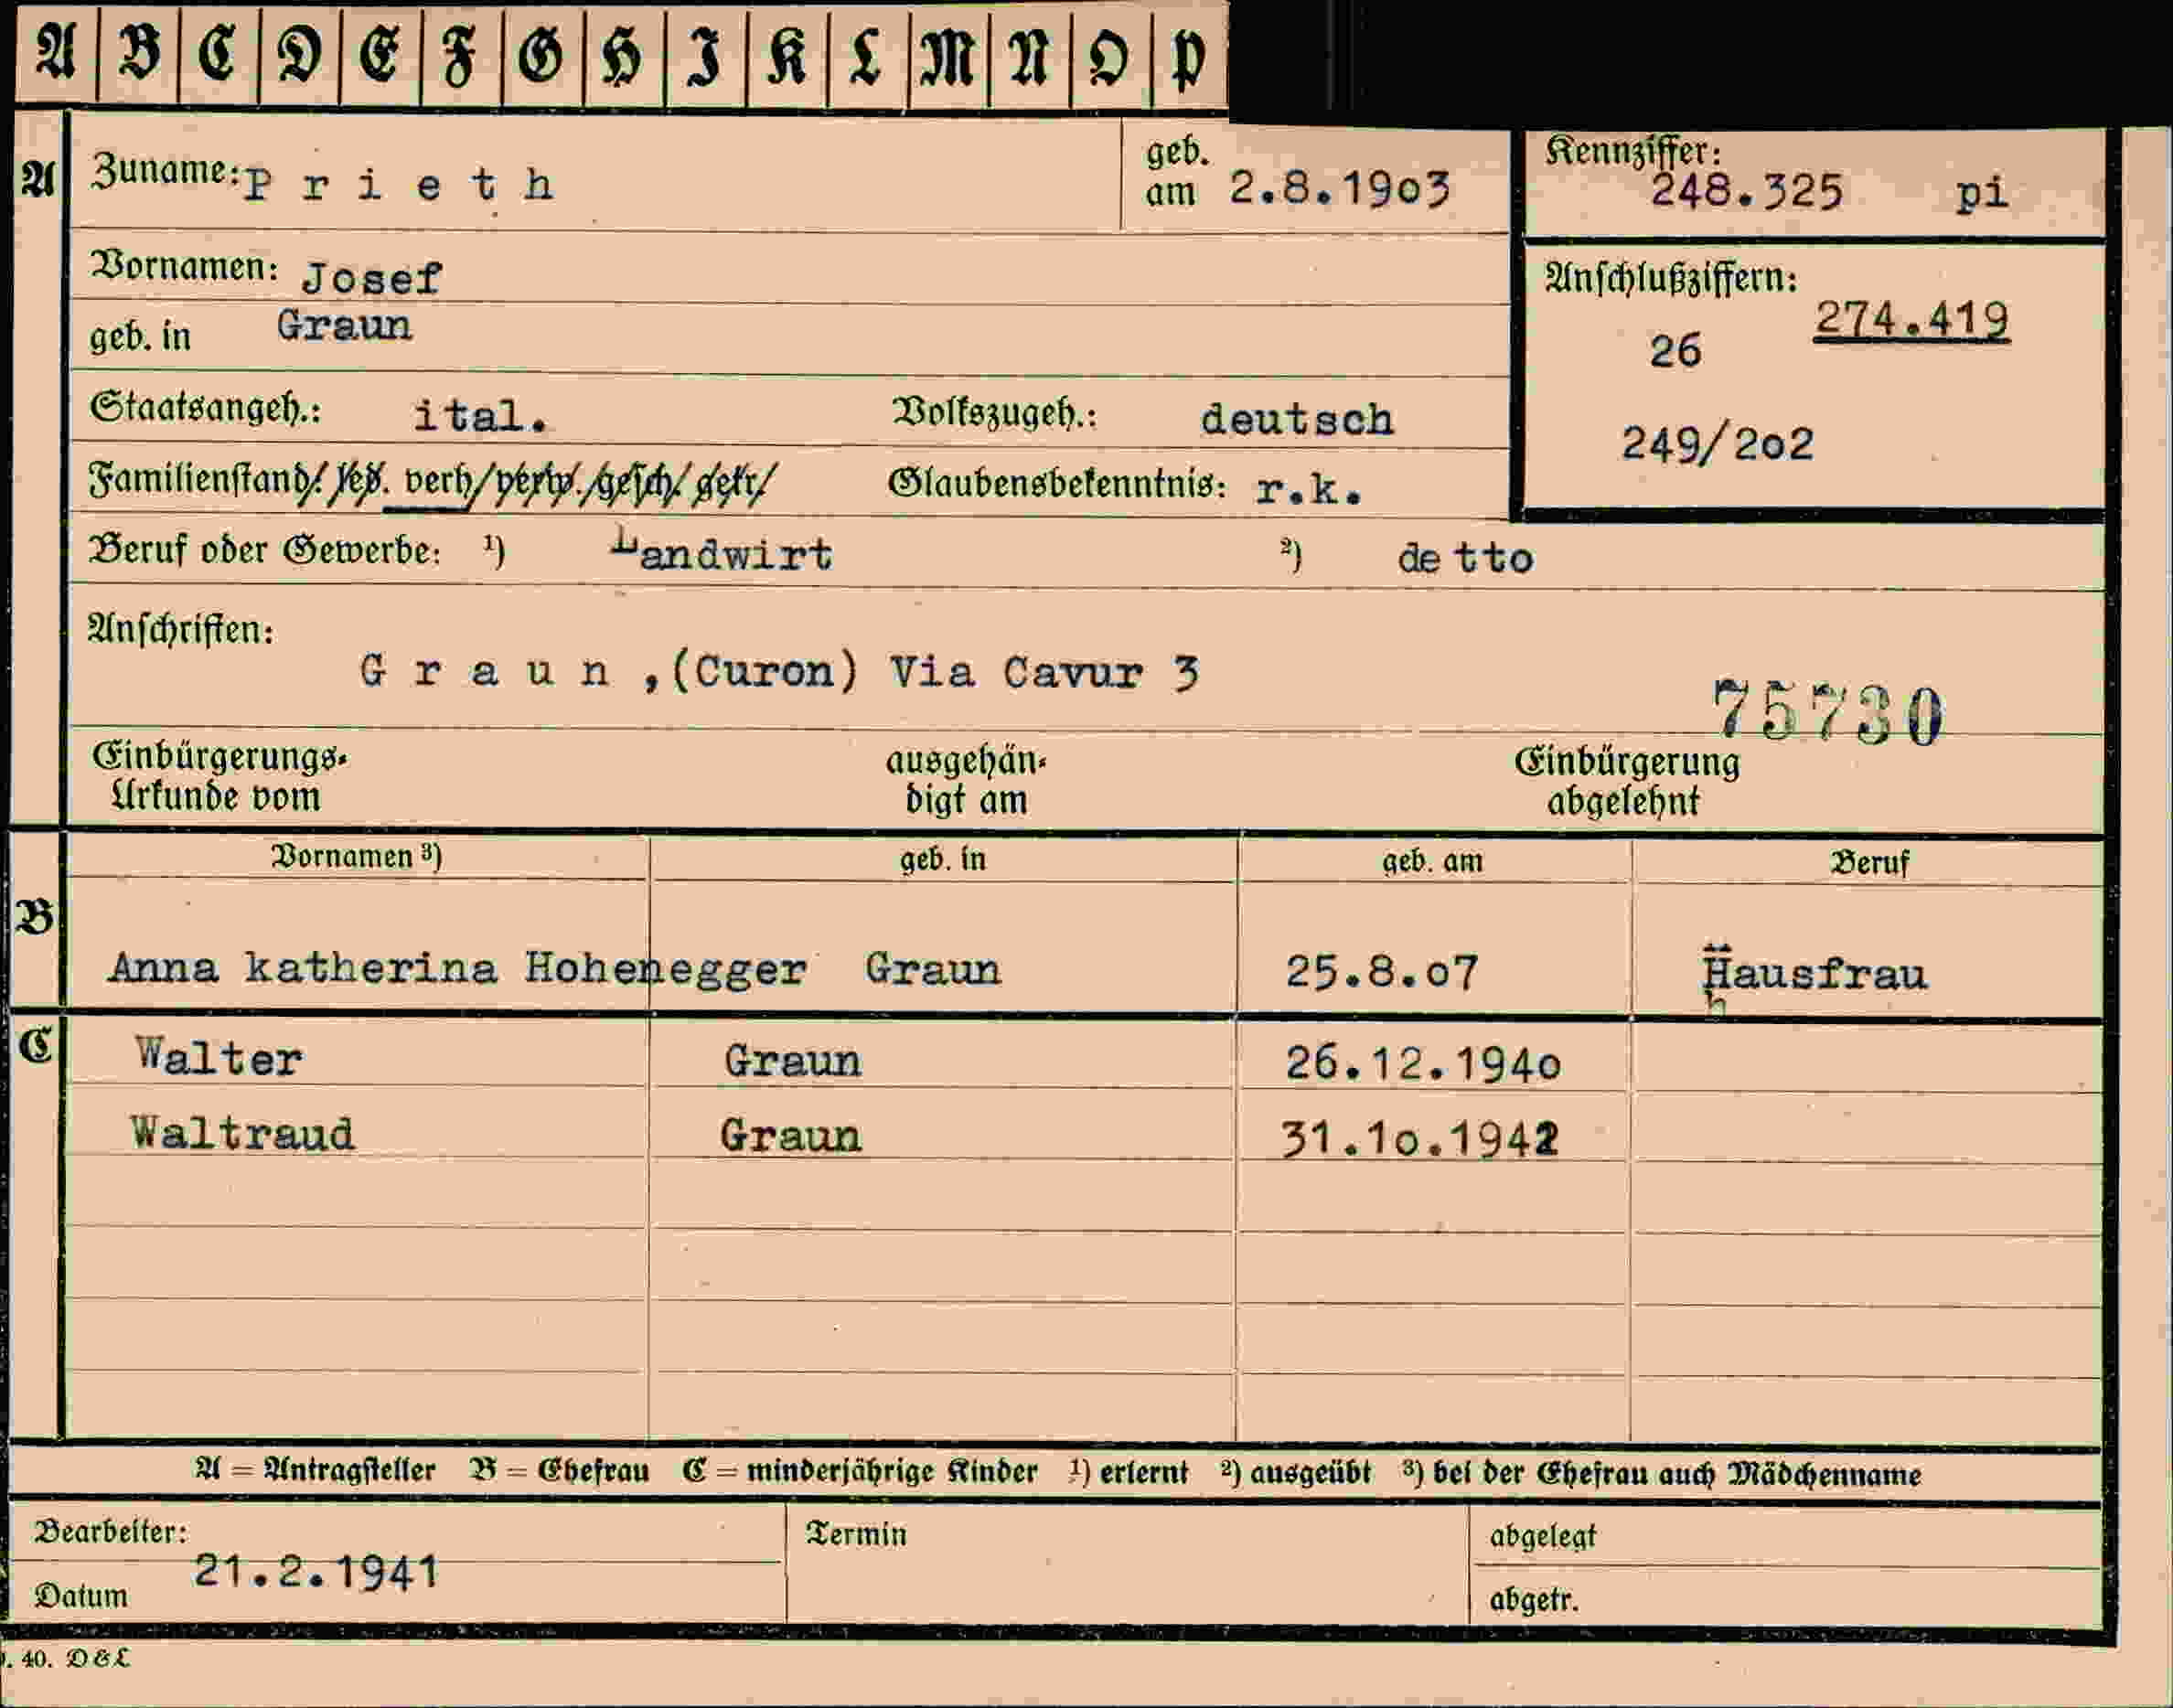 A B C D E F G H I K L M N O P
A Zuname: P r i e t h geb. am 2.8.19o3 Kennziffer: 248.325 pi
Vornamen: Josef Anschlußziffern:
geb. in Graun 26 274.419
Staatsangeh.: ital. Volkszugeh.: deutsch 249/2o2
Familienstand: led. verh. verw. gesch. getr. Glaubensbekenntnis: r.k.
Beruf oder Gewerbe: ¹) Landwirt ²) detto
Anschriften:
G r a u n ,(Curon) Via Cavur 3
75730
Einbürgerungs- ausgehän- Einbürgerung
Urkunde vom digt am abgelehnt
Vornamen ³) geb. in geb. am Beruf
B Anna katherina Hohenegger Graun 25.8.o7 Hausfrau
C Walter Graun 26.12.194o
Waltraud Graun 31.1o.1942
A = Antragsteller B = Ehefrau C = minderjährige Kinder ¹) erlernt ²) ausgeübt ³) bei der Ehefrau auch Mädchenname
Bearbeiter: Termin abgelegt
21.2.1941
Datum abgetr.
. 40. D & L